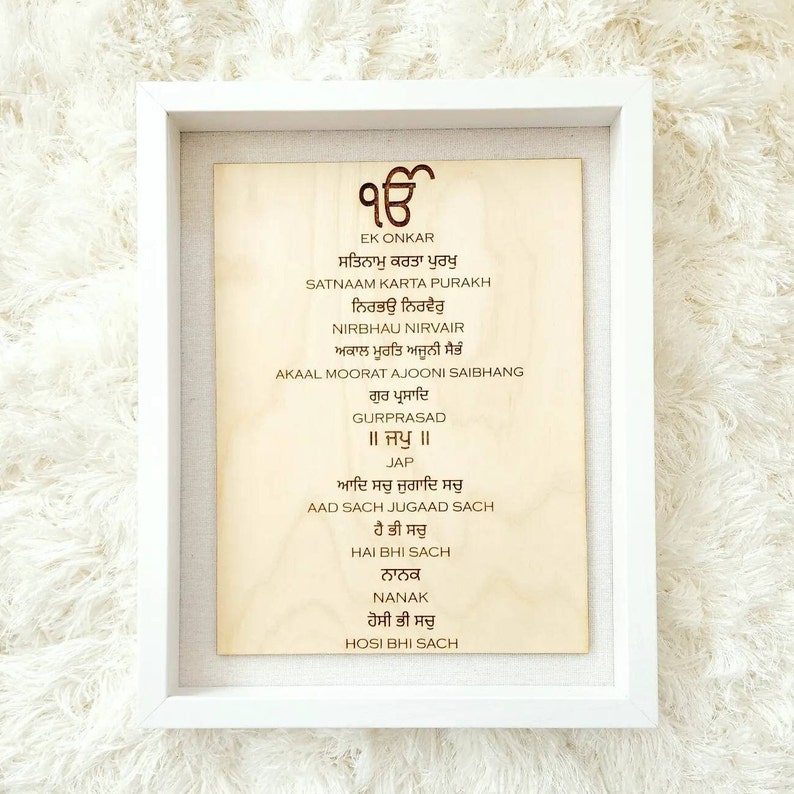 ੴ
EK ONKAR
ਸਤਿਨਾਮੁ ਕਰਤਾ ਪੁਰਖੁ
SATNAAM KARTA PURAKH
ਨਿਰਭਉ ਨਿਰਵੈਰੁ
NIRBHAU NIRVAIR
ਅਕਾਲ ਮੂਰਤਿ ਅਜੂਨੀ ਸੈਭੰ
AKAAL MOORAT AJOONI SAIBHANG
ਗੁਰ ਪ੍ਰਸਾਦਿ
GURPRASAD
॥ ਜਪੁ ॥
JAP
ਆਦਿ ਸਚੁ ਜੁਗਾਦਿ ਸਚੁ
AAD SACH JUGAAD SACH
ਹੈ ਭੀ ਸਚੁ
HAI BHI SACH
ਨਾਨਕ
NANAK
ਹੋਸੀ ਭੀ ਸਚੁ
HOSI BHI SACH